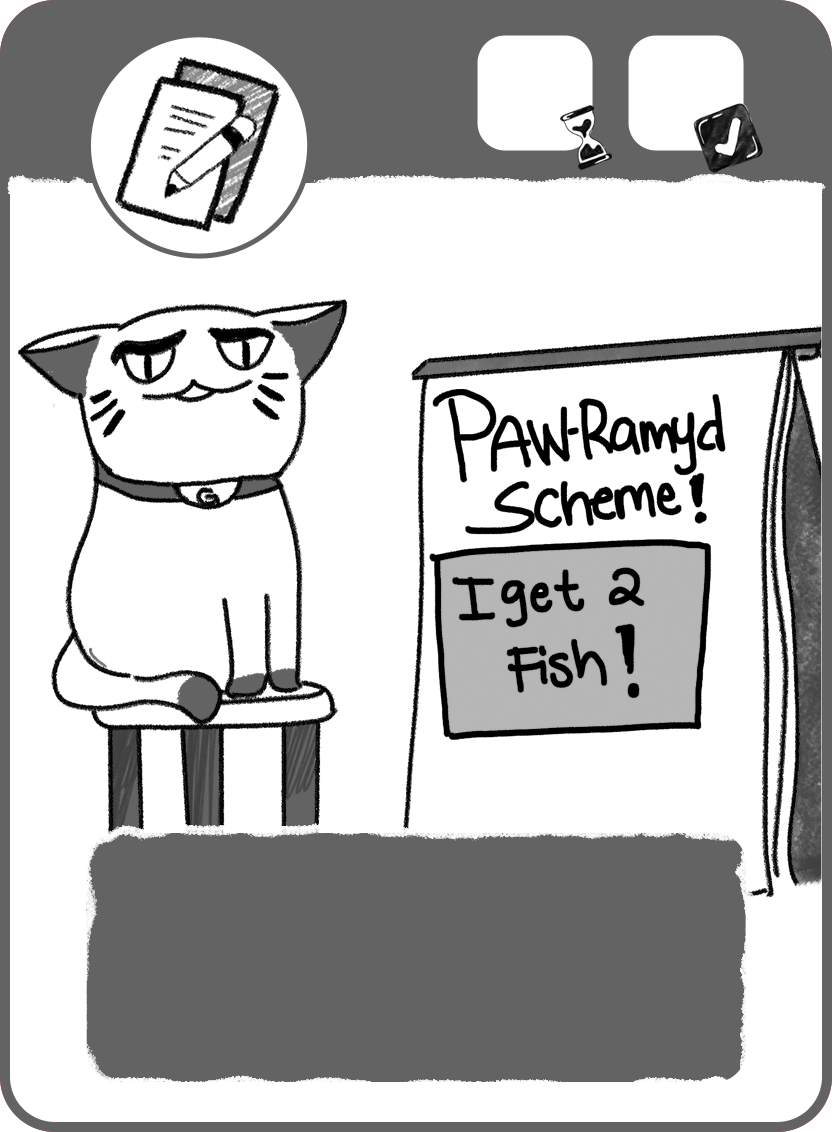 G
PAW-Ramyd
Scheme!
I get 2
Fish!